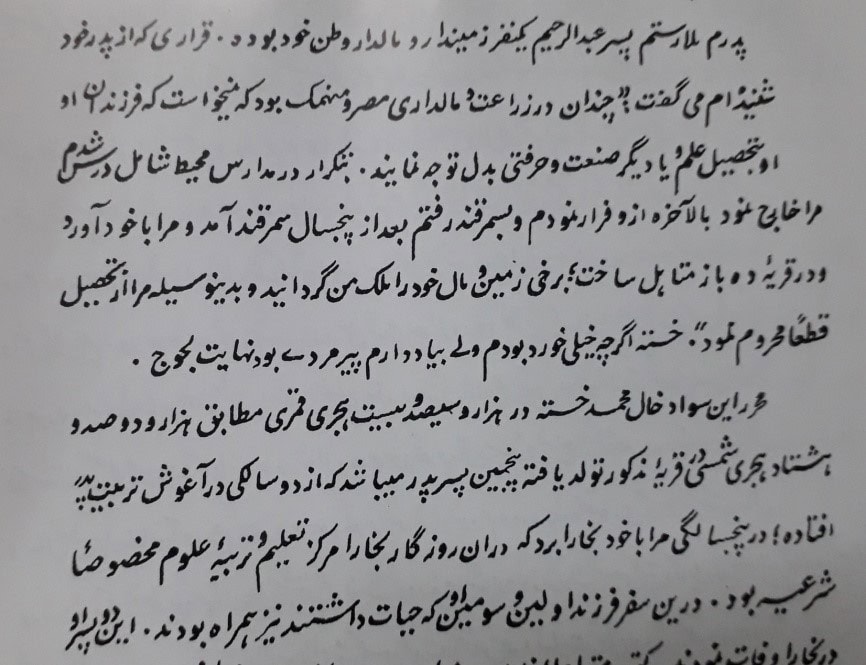 پدرم ملا رستم پسر عبدالرحیم یکنفر زمیندار و مالدار وطن خود بوده . قراری که از پدر خود
شنیده‌ام می گفت : "چندان در زراعت و مالداری مصر و منهمک بود که نمیخواست که فرزندان او
او بتحصیل علم و یا دیگر صنعت و حرفتی بدل توجه نمایند . بتکرار در مدارس محیط شامل درس شدم
مرا خارج نمود بالآخره ازو فرار نمودم و بسمرقند رفتم بعد از پنجسال سمرقند آمد و مرا با خود آورد
و در قریۀ ده باز متاهل ساخت ؛ برخی زمین و مال خود را ملک من گردانید و بدینوسیله مرا از تحصیل
قطعاً محروم نمود". خسته اگرچه خیلی خورد بودم ولے بیاد دارم پیر مردے بود نهایت لجوج .
محرر این سواد خال محمد خسته در هزار و سیصد و بیست هجری قمری مطابق هزار و دو صد و
هشتاد هجری شمسی در قریۀ مذکور تولد یافته پنجمین پسر پدر میباشد که از دو سالگی در آغوش تربیت پدر
افتاده ؛ در پنجسالگی مرا با خود بخارا برد که دران روزگار بخارا مرکز تعلیم و تربیۀ علوم مخصوصاً
شرعیه بود . درین سفر فرزند اولین و سومین او که حیات داشتند نیز همراه بودند . این دو پسر او
در بخارا وفات نمودند